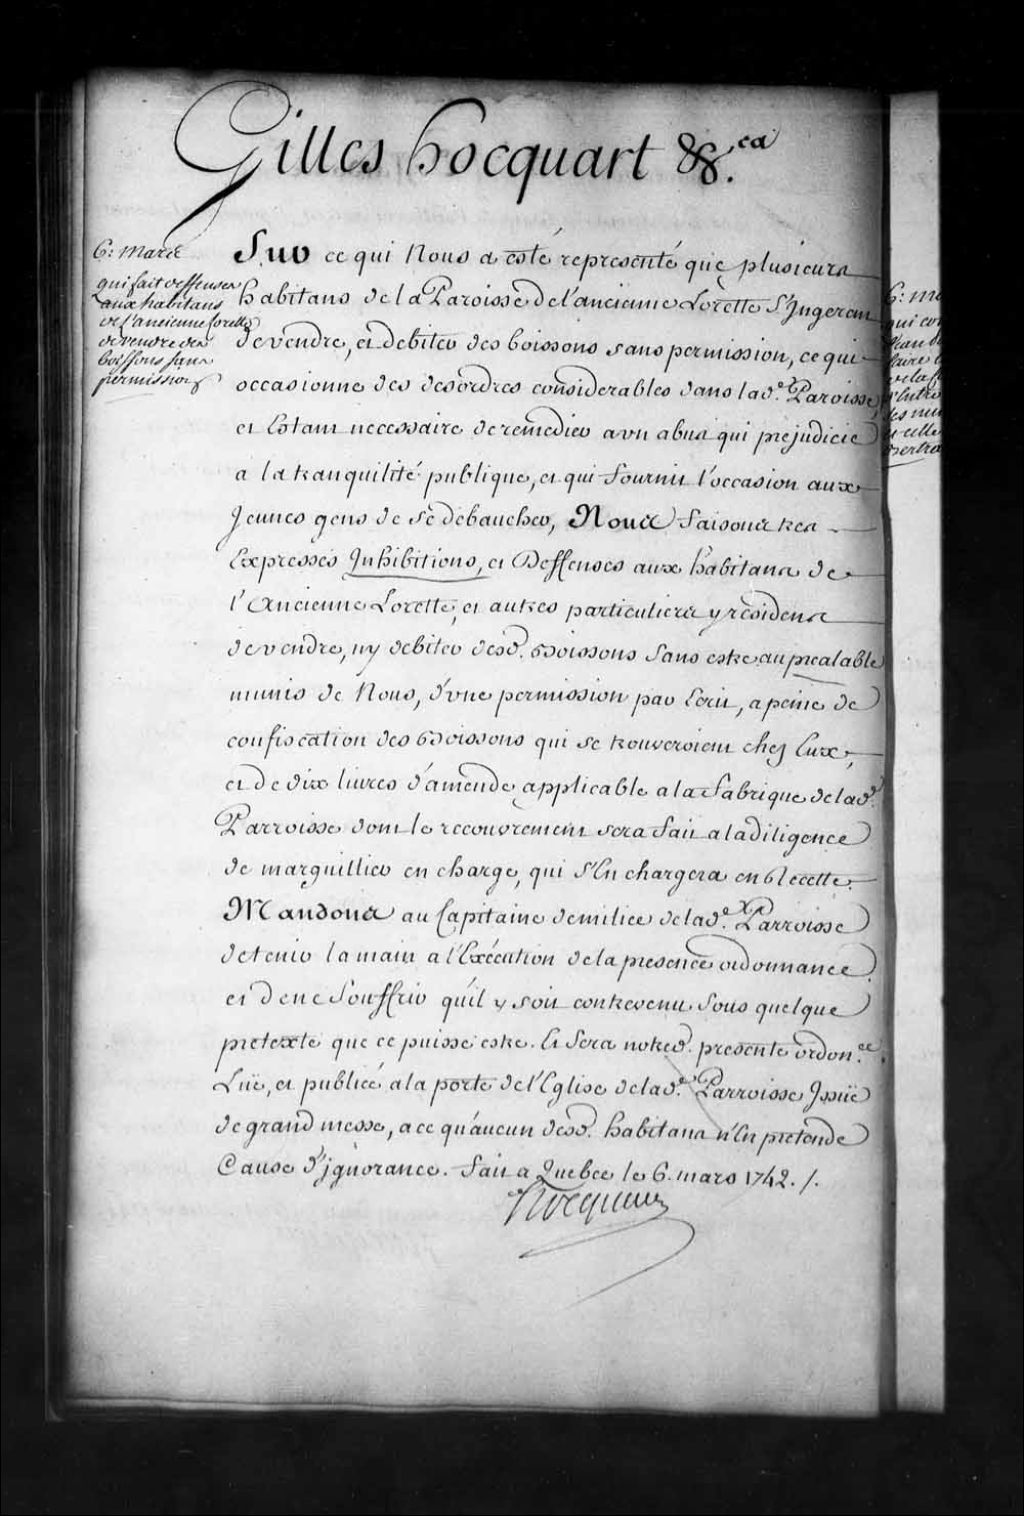 Gilles hocquart &c.ca
6: Mars
qui fait deffenses
aux habitans
de l'ancienne lorette
de vendre des
boissons sans
permission
Sur ce qui Nous a esté representé que plusieurs
habitans de la Paroisse de l'ancienne Lorette S'Ingerent
de vendre, et debiter des boissons sans permission, ce qui
occasionne des desordres considerables dans lad.e Paroisse,
et Estant necessaire de remedier a un abus qui prejudicie
a la tranquilité publique, et qui fournit l'occasion aux
Jeunes gens de se debaucher, Nous faisons tres
Expresses Inhibitions, et Deffenses aux habitans de
l'Ancienne Lorette, et autres particuliers y residens
de vendre, ny debiter desd. Boissons sans estre au prealable
munis de Nous, d'une permission par Ecrit, a peine de
confiscation des Boissons qui se trouveroient chez Eux,
et de dix livres d'amende applicable a la fabrique de lad.e
Parroisse dont le recouvrement sera fait a la diligence
de marguillier en charge, qui s'En chargera en Recette.
Mandons au Capitaine de milice de lad.e Parroisse
de tenir la main a l'Exécution de la presence ordonnance
et de ne Souffrir qu'il y soit contrevenu Sous quelque
pretexte que ce puisse estre. Et Sera notred. presente ordon.ce
Luë, et publiée a la porte de l'Eglise de lad.e Parroisse Issuë
de grand messe, a ce qu'aucun desd. habitans n'En pretende
Cause d'ignorance. fait a Quebec le 6. mars 1742. /.
Hocquart
6: ma
qui